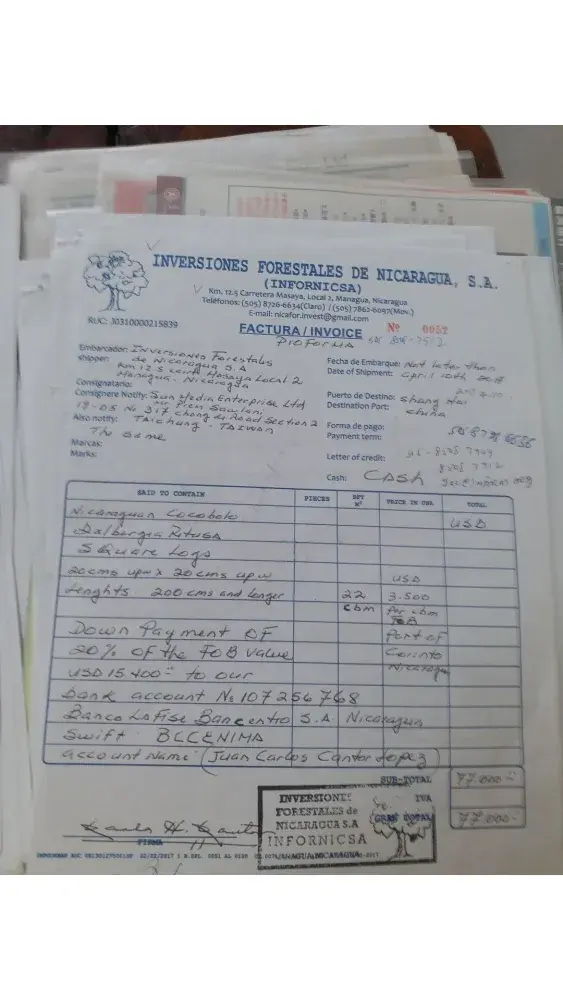 INVERSIONES FORESTALES DE NICARAGUA, S.A.
(INFORNICSA)
Km. 12.5 Carretera Masaya, Local 2, Managua, Nicaragua
Teléfonos: (505) 8726-6634(Claro) / (505) 7862-6097(Mov.)
E-mail: nicafor.invest@gmail.com
RUC: J0310000215839
FACTURA / INVOICE
Nº 0052
Proforma
Embarcador: Inversiones Forestales
shipper: de Nicaragua S.A
Km 12 5 Masaya Local 2
Managua. Nicaragua
Consignatario:
Consignere Notify: Sun Media Enterprise Ltd
19-05 No 317 Chong de Road Section 2
Also notify: Taichung - Taiwan
The same
Marcas:
Marks:
Fecha de Embarque: Not later than
Date of Shipment: April 10th
Puerto de Destino: Shang Hai
Destination Port: China
Forma de pago:
Payment term:
Letter of credit:
Cash: CASH
SAID TO CONTAIN PIECES BFT M³ PRICE IN USA TOTAL
Nicaraguan Cocobolo USD
Dalbergia Retusa
Square Logs
20cms upw x 20cms upw USD
Lenghts 200 cms and longer 22 3.500
cbm Per cbm
FOB
Down Payment OF Port of
20% of the FOB value Corinto
Nicaragua
USD 15.400.- to our
bank account No 107256768
Banco LaFise Bancentro S.A. Nicaragua
Swift: BCCENIMA
account Name: (Juan Carlos Cantor Lopez)
SUB-TOTAL 77.000.-
IVA
GRAN TOTAL 77.000-
INVERSIONES
FORESTALES de
NICARAGUA S.A
INFORNICSA
MANAGUA, NICARAGUA
FIRMA